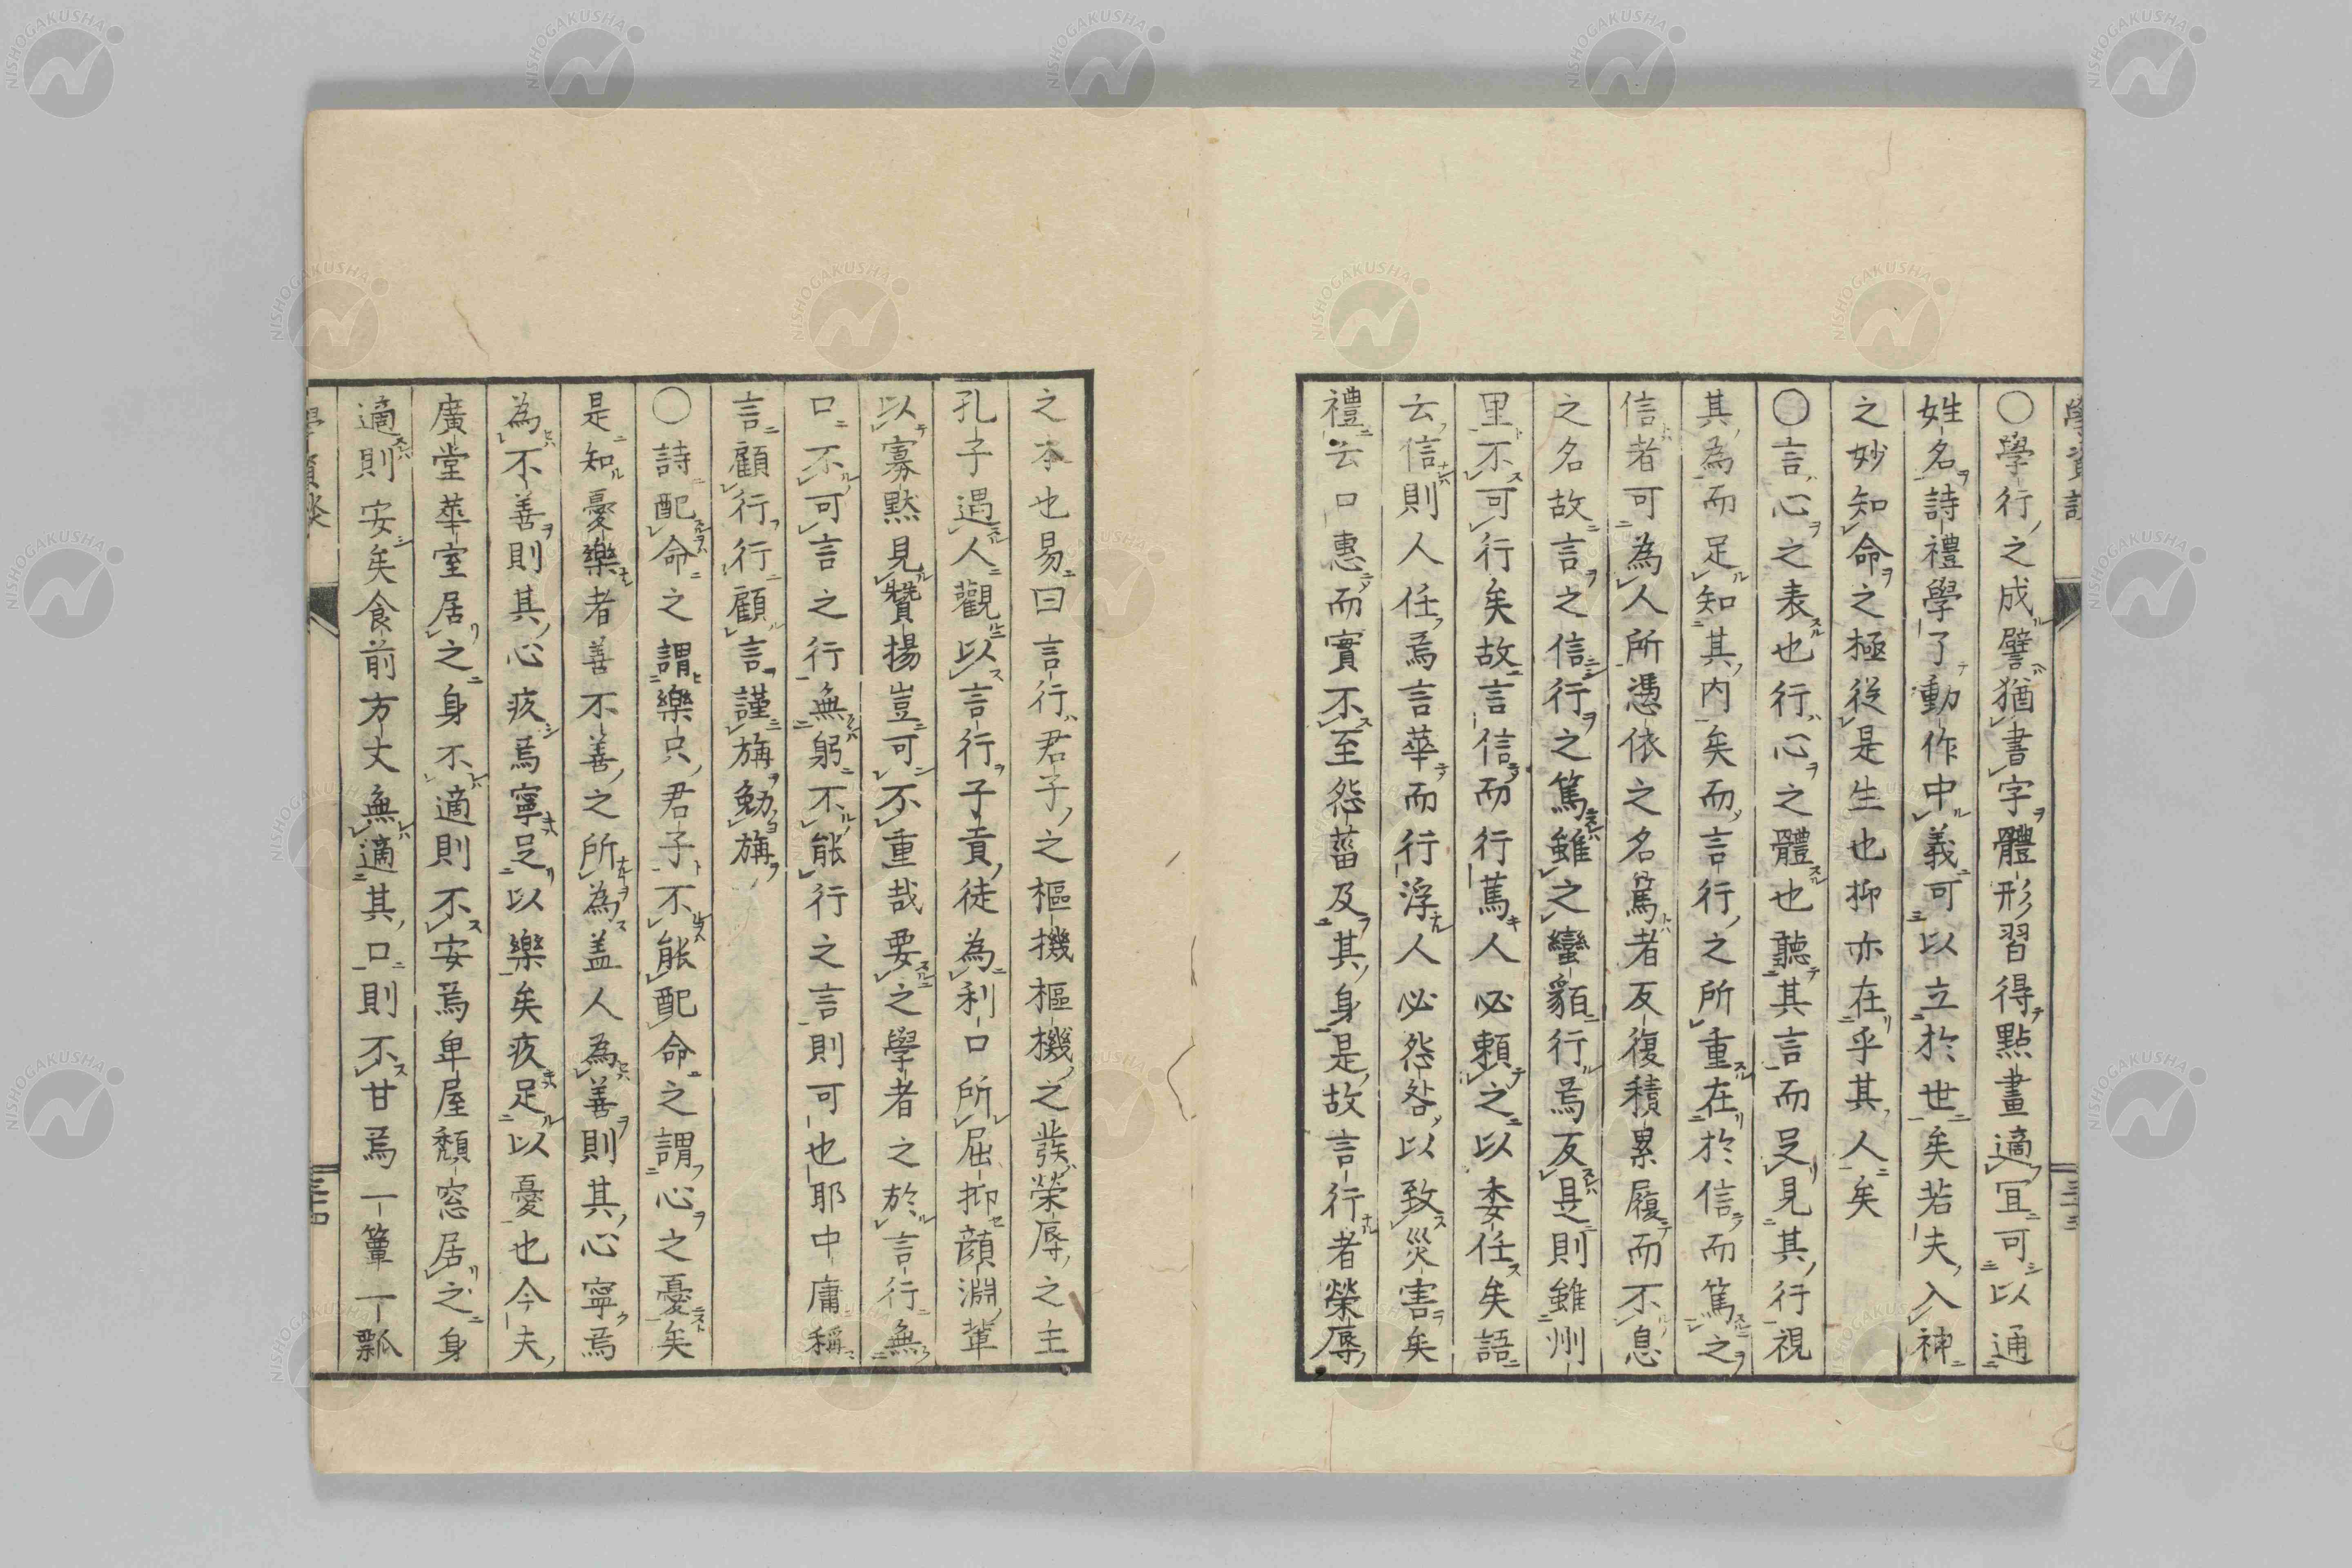 ○學行之成譬猶書字體形習得點畫適冝可以通
姓名詩禮學了動作中義可以立於世矣若夫入神
之妙知命之極從是生也抑亦在乎其人矣
○言心之表也行心之體也聽其言而足見其行視
其為而足知其内矣而言行之所重在於信而篤之
信者可為人所憑依之名篤者反復積累履而不息
之名故言之信行之篤雖之蠻貊行焉反是則雖州
里不可行矣故言信而行篤人必賴之以委任矣語
云信則人任焉言華而行浮人必怨咎以致災害矣
禮云口惠而實不至怨菑及其身是故言行者榮辱
之本也易曰言行君子之樞機樞機之發榮辱之主
孔子遇人觀以言行子貢徒為利口所屈抑顔淵輩
以寡默見贊揚豈可不重哉要之學者之於言行無
口不可言之行無躬不能行之言則可也耶中庸稱
言顧行行顧言謹旃勉旃
○詩配命之謂樂只君子不能配命之謂心之憂矣
是知憂樂者善不善之所為盖人為善則其心寧焉
為不善則其心疚焉寧足以樂矣疚足以憂也今夫
廣堂華室居之身不適則不安焉卑屋頽窓居之身
適則安矣食前方丈無適其口則不甘焉一簞一瓢